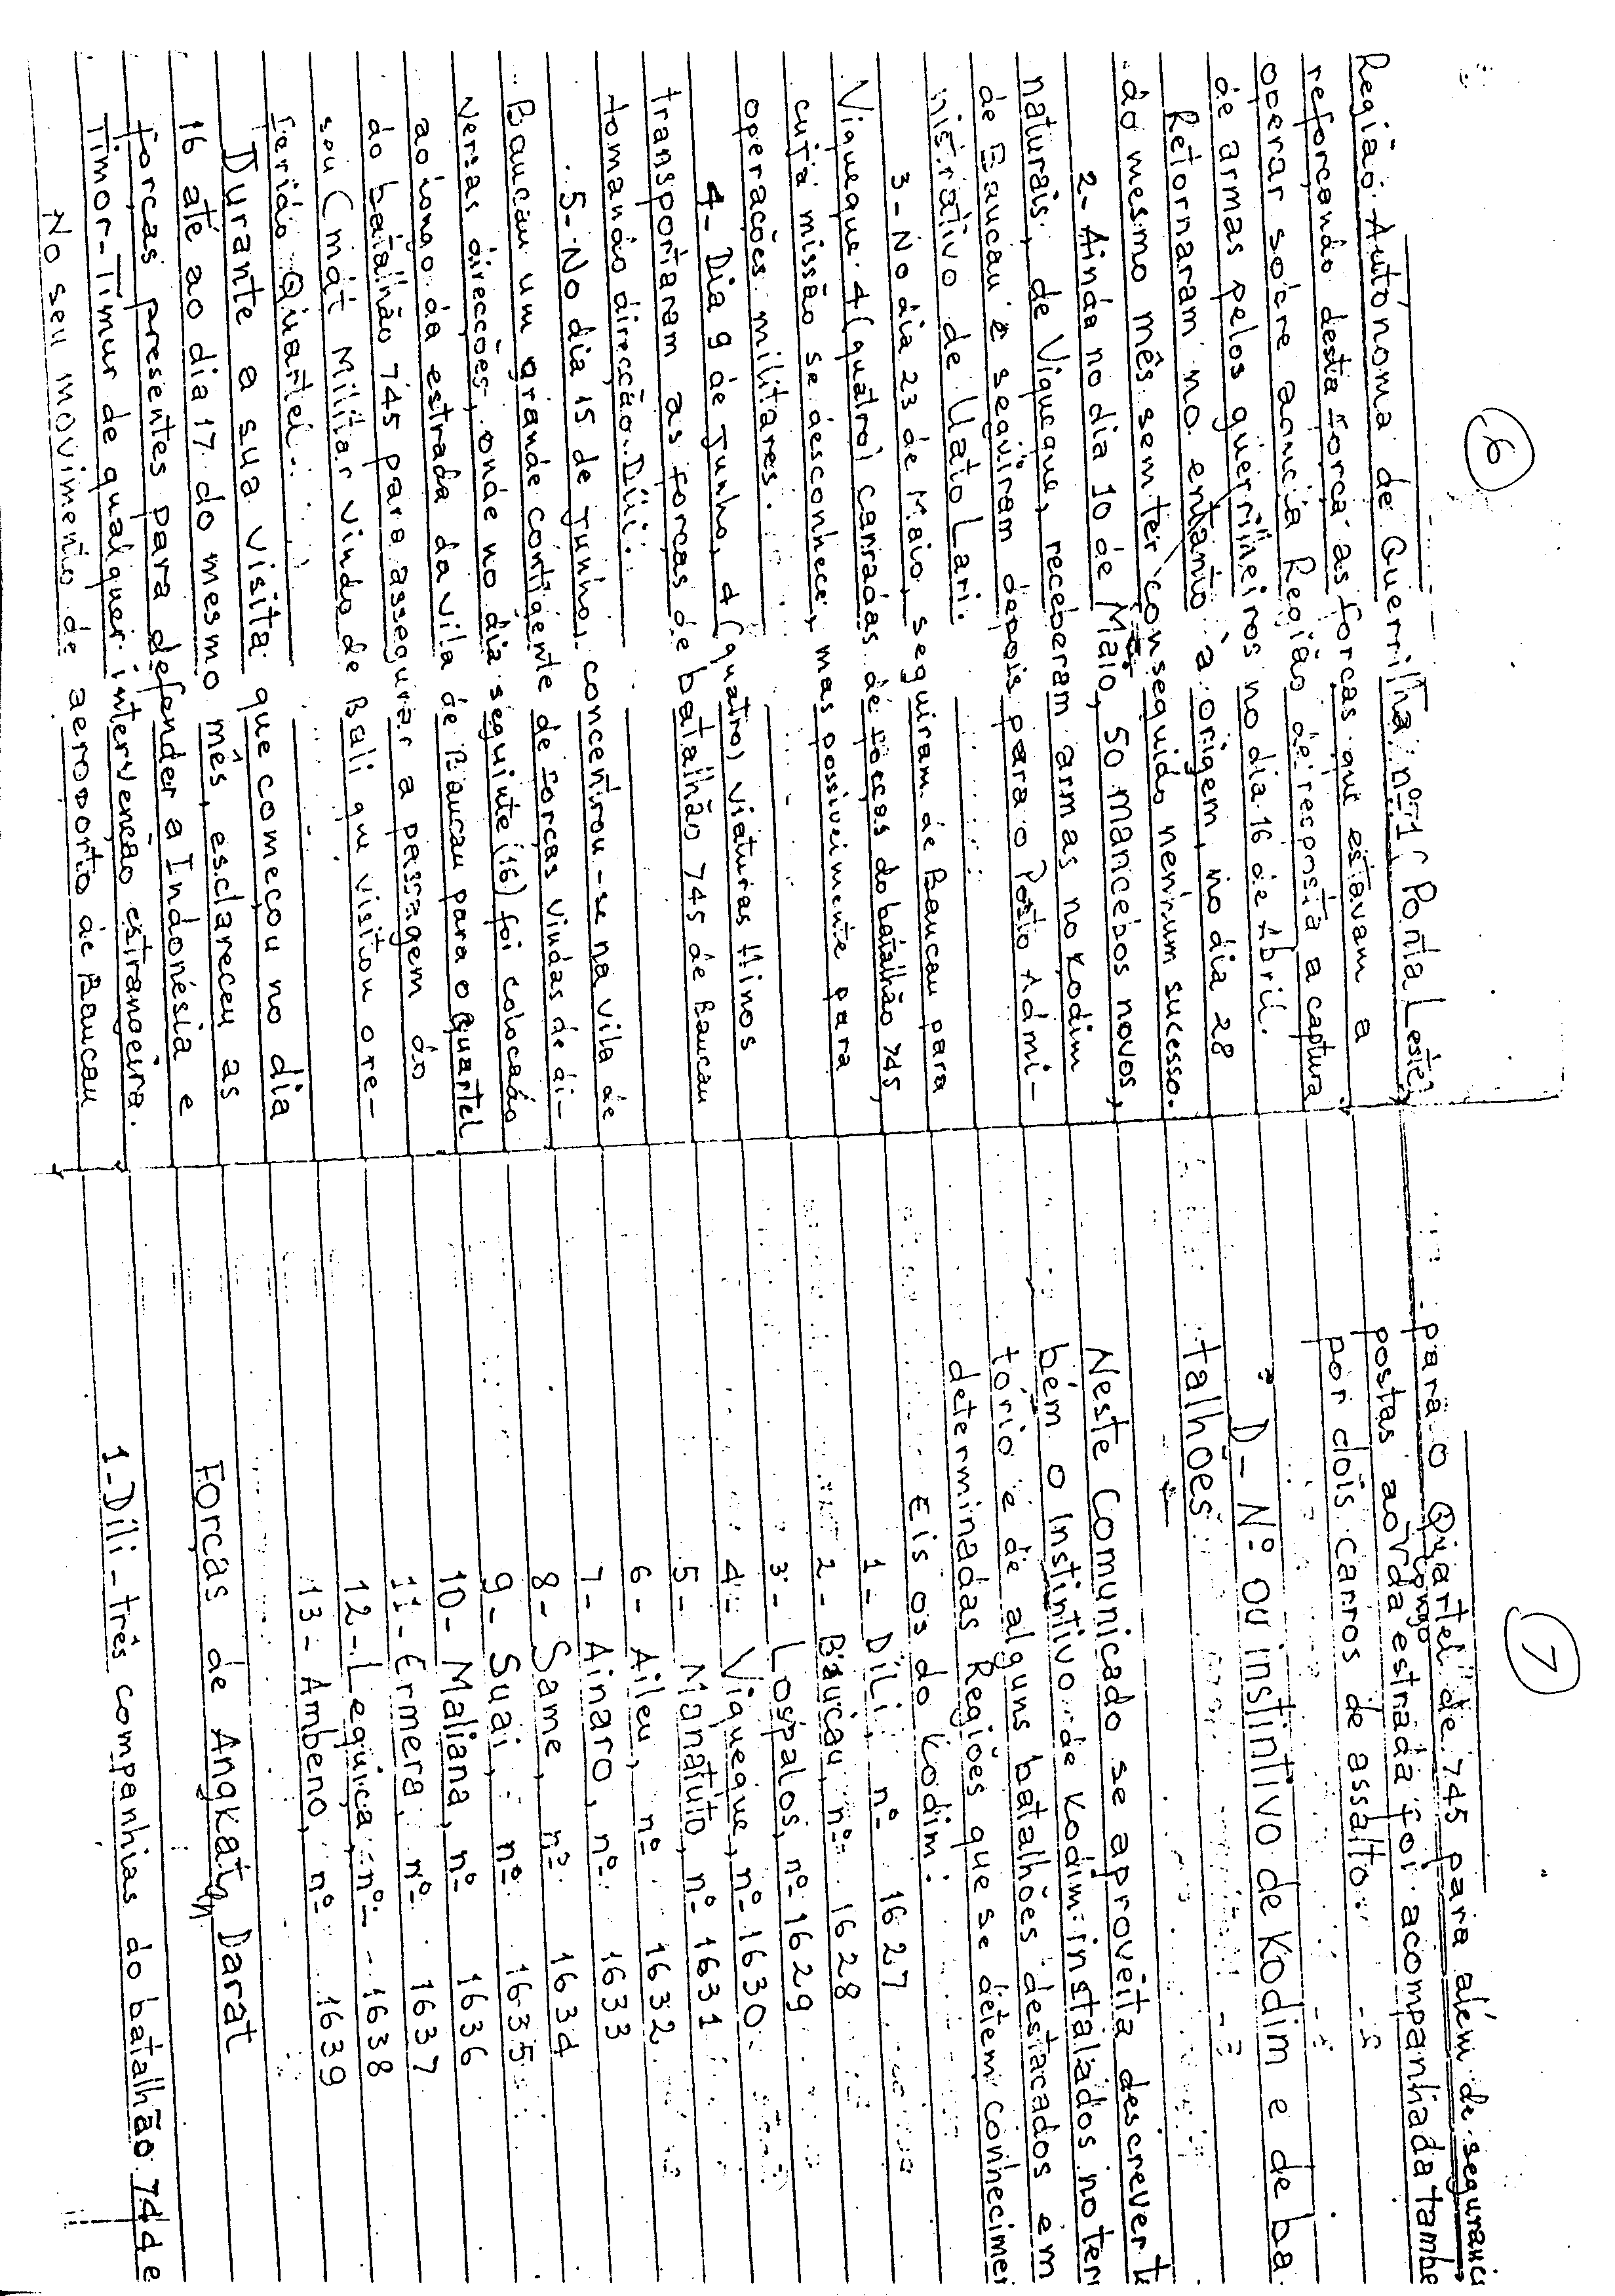 6
Região Autónoma de Guerrilha nº 1 (Ponta Leste)
reforçando desta força as forças que estavam a
operar sobre aquela Região de resposta a captura
de armas pelos guerrilheiros no dia 16 de Abril.
Retornaram no entanto à origem, no dia 28
do mesmo mês sem ter conseguido nenhum sucesso.
2- Ainda no dia 10 de Maio, 50 mancebos novos,
naturais, de Viqueque, receberam armas no Kodim
de Baucau e seguiram depois para o Posto Admi-
nistrativo de Uato Lari.
3- No dia 23 de Maio, seguiram de Baucau para
Viqueque 4 (quatro) camradas de forças do batalhão 745,
cuja missão se desconhece, mas possivelmente para
operações militares.
4- Dia 9 de Junho, 4 (quatro) viaturas Hinos
transportaram as forças de batalhão 745 de Baucau
tomando direcção Dili.
5- No dia 15 de Junho, concentrou-se na vila de
Baucau um grande contigente de forças vindas de di-
versas direcções, onde no dia seguinte (16) foi colocado
ao longo da estrada da vila de Baucau para o Quartel
do batalhão 745 para assegurar a passagem do
seu Cmdt Militar vindo de Bali qu visitou o re-
ferido Quartel.
Durante a sua visita que começou no dia
16 até ao dia 17 do mesmo mês, esclareceu as
forças presentes para defender a Indonésia e
Timor-Timur de qualquer intervenção estrangeira.
No seu movimento de aeroporto de Baucau
7
para o Quartel de 745 para além de seguranç
postas ao longo da estrada foi acompanhada tambe
por dois carros de assalto.
D- Nº ou instintivo de Kodim e de ba
talhões
Neste Comunicado se aproveita descrever t
bém o Instintivo de Kodim instalados no terr
tório e de alguns batalhões destacados em
determinadas Regiões que se detem conhecimen
Eis os do Kodim.
1- Dili, nº 1627
2- Baucau, nº 1628
3- Lospalos, nº 1629
4- Viqueque, nº 1630
5- Manatuto, nº 1631
6- Aileu, nº 1632
7- Ainaro, nº 1633
8- Same, nº 1634
9- Suai, nº 1635
10- Maliana, nº 1636
11- Ermera, nº 1637
12- Lequiça, nº - 1638
13- Ambeno, nº 1639
Forças de Angkatn Darat
1-Dili - três companhias do batalhão 744 e